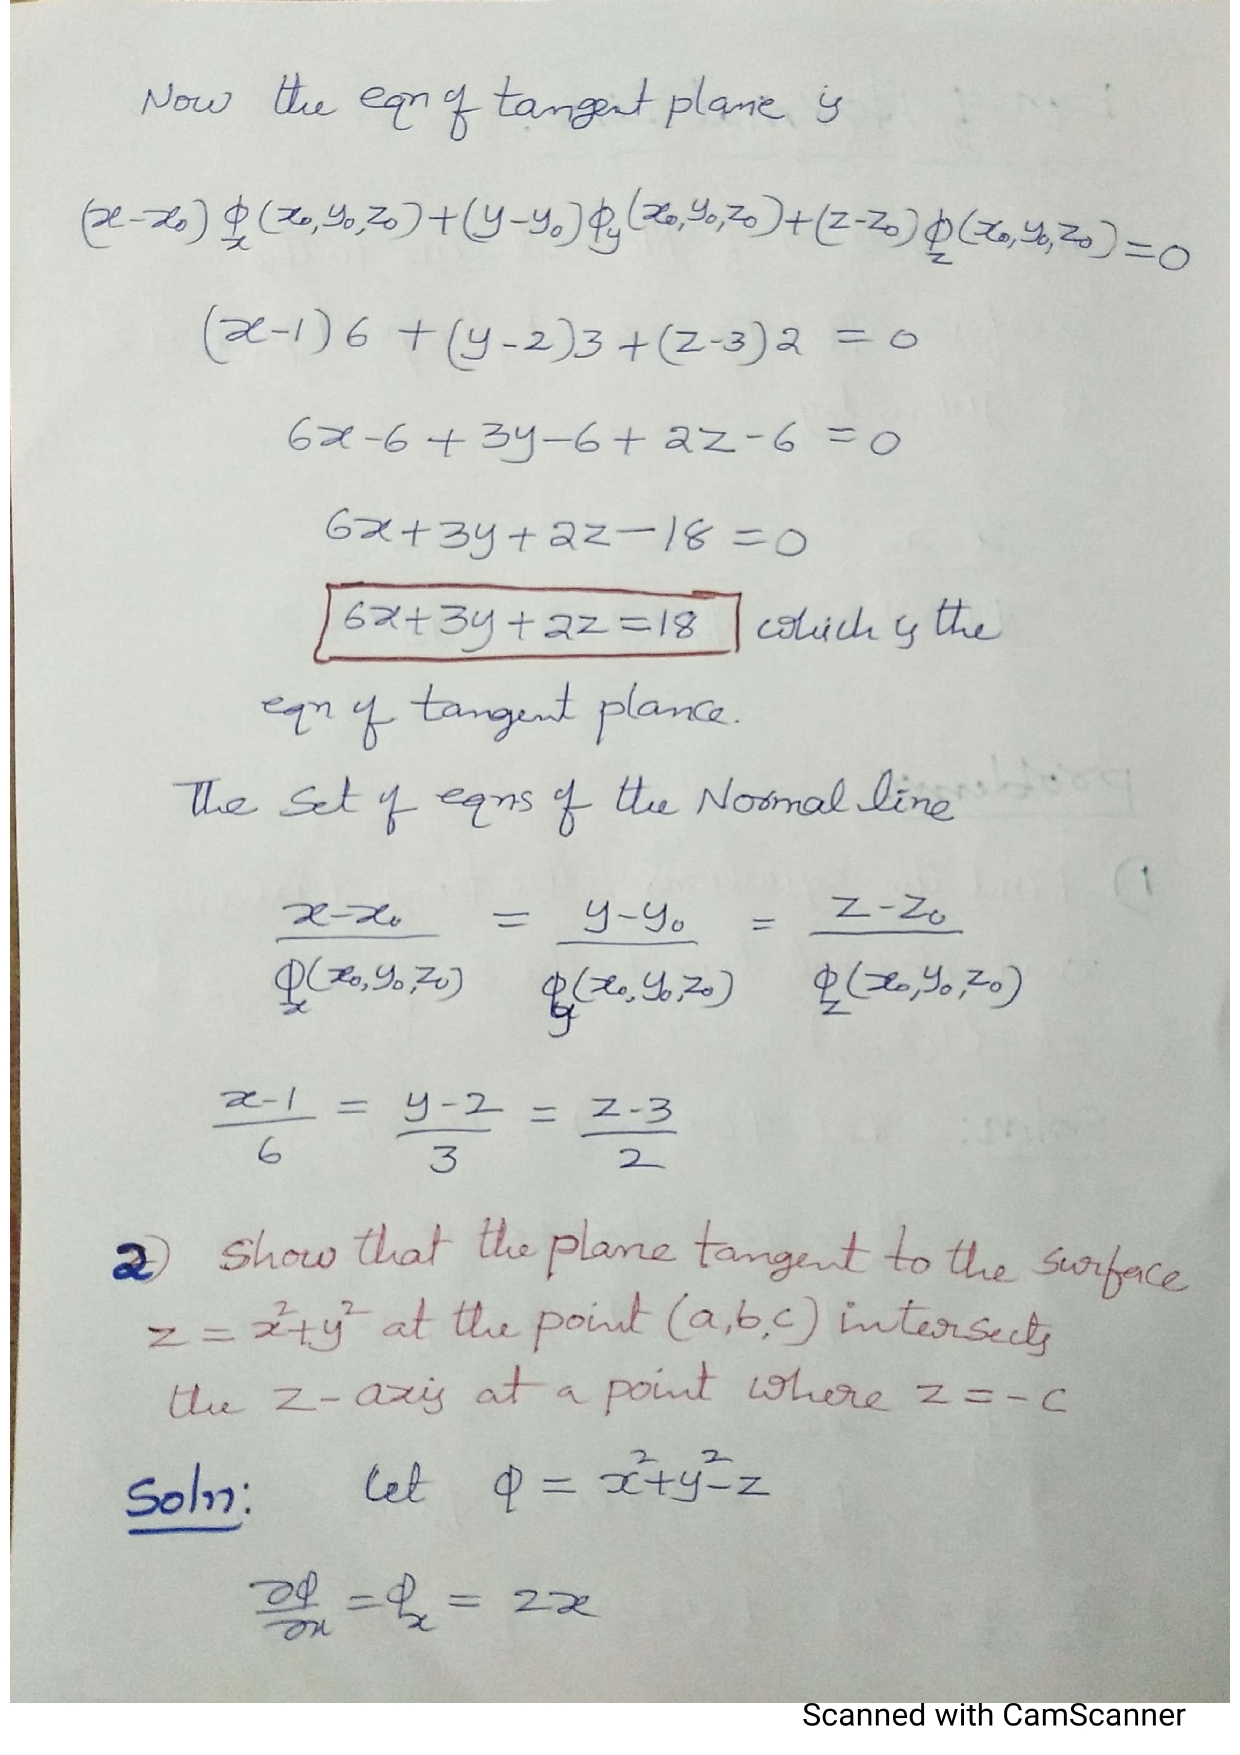 Now the eqn of tangent plane is
(x-x₀) ϕₓ(x₀,y₀,z₀)+(y-y₀)ϕᵧ(x₀,y₀,z₀)+(z-z₀)ϕ_z(x₀,y₀,z₀)=0
(x-1)6 +(y-2)3+(z-3)2 = 0
6x-6+3y-6+2z-6 =0
6x+3y+2z-18=0
6x+3y+2z=18 which is the
eqn of tangent plance.
The Set of eqns of the Normal line
(x-x₀)/ϕₓ(x₀,y₀,z₀) = (y-y₀)/ϕᵧ(x₀,y₀,z₀) = (z-z₀)/ϕ_z(x₀,y₀,z₀)
(x-1)/6 = (y-2)/3 = (z-3)/2
2) Show that the plane tangent to the surface
z = x²+y² at the point (a,b,c) intersects
the z-axis at a point where z=-c
Soln: Let ϕ = x²+y²-z
∂ϕ/∂x = ϕₓ = 2x
Scanned with CamScanner